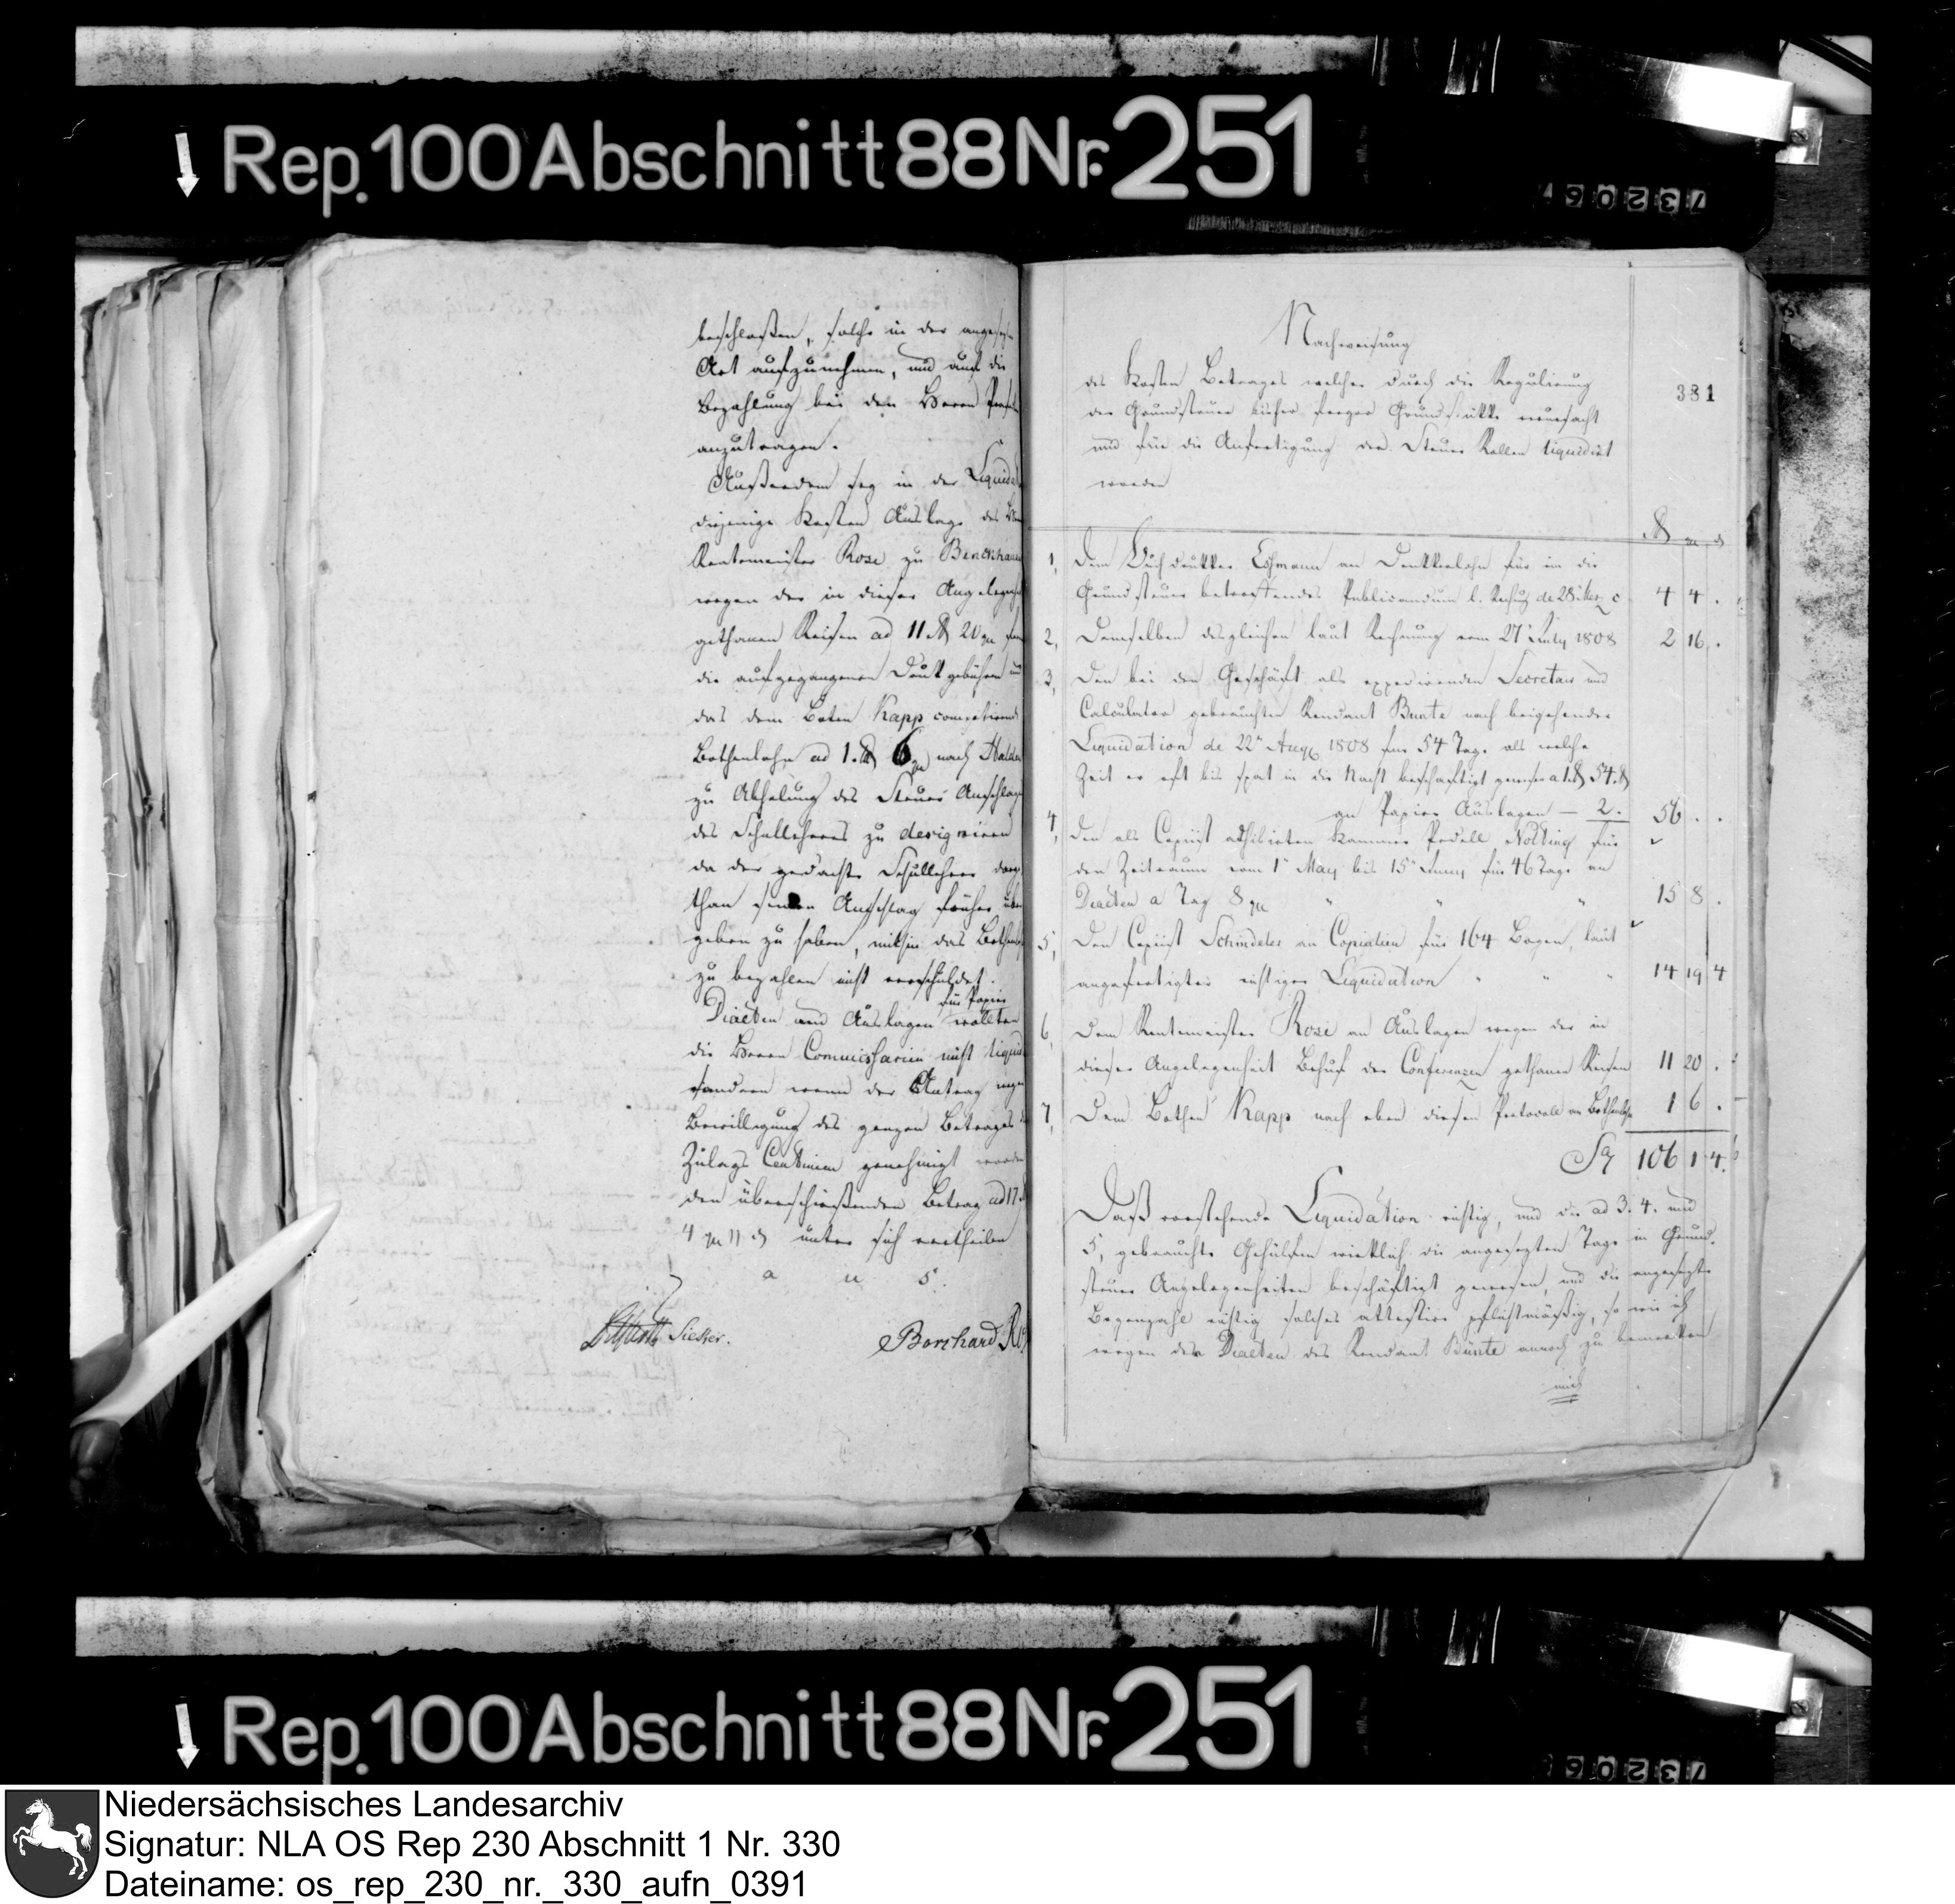 Rep. 100 Abschnitt 88 Nr. 251
beschloßen, solche in der
Art aufzunehmen, und auf die
Bezahlung bei dem Herrn
anzutragen.
Außerdem sey in der
diejenige Kosten Auslage des
Rentemeister Rose zu
wegen der in dieser
gethanen Reisen ad 11 rt 20 gr
die aufgegangenen Druckgebühren
das dem Boten Kapp
Bothenlohn ad 1 rt 6 gr nach
zu Abholung des Steuer
des Schullehrers zu designiren
da der gedachte Schullehrer
than seinen Anschlag früher
geben zu haben, mithin das
zu bezahlen nicht verschuldet.
für Papier
Diaeten und Auslagen wollten
die Herrn Commissarien nicht
sondern wenn der Antrag
Bewilligung des ganzen Betrages
Zulage Centimen genehmigt
den überschießenden Betrag ad 17
4 gr 11 d unter sich vertheilen
a u s.
Sieker.
Borchard
381
Nachweisung
des Kosten Betrages welcher durch die Regulirung
der Grundsteuer bisher freyer Grundstükke verursacht
und für die Anfertigung der Steuer Rollen liquidirt
worden
rt gr d
1, Dem Buchdrukker an Drukkerlohn für in die
Grundsteuer betreffendes Publicandum l. Rechng de 28 c 4 4 .
2, Demselben desgleichen laut Rechnung vom 27 1808 2 16 .
3, Den bei dem Geschäft als expedirenden Secretair und
Calculator gebrauchten Rendant Bunte nach beigehender
Liquidation de 22 Aug 1808 für 54 Tage als welche
Zeit er oft bis spät in die Nacht beschäftigt gewesen a 1 rt 54 rt
an Papier Auslagen — 2. 56 . .
4, Den als Copiist adhibirten Kammer Pedell Nolting für
den Zeitraum vom 1 May bis 15 Juny für 46 Tage an
Diaeten a Tag 8 gr " " " 15 8 .
5, Den Copiist Schindeler an Copialien für 164 Bogen, laut
angefertigter richtiger Liquidation " " " 14 19 4
6, Dem Rentemeister Rose an Auslagen wegen der in
dieser Angelegenheit Behuf der Conferenzen gethanen Reisen 11 20 .
7, Dem Bothen Kapp nach eben diesem Protocoll an Bothenlohn 1 6 .
Sa 106 1 4.
Daß vorstehende Liquidation richtig, und die ad 3. 4. und
5, gebrauchte Gehülfen wirklich die angesezten Tage in Grund-
steuer Angelegenheiten beschäftigt gewesen, und die angesezte
Bogenzahl richtig solches attestire pflichtmäßig, so wie ich
wegen der Diaeten des Rendant Bünte annoch zu bemerken
mich
Rep. 100 Abschnitt 88 Nr. 251
Niedersächsisches Landesarchiv
Signatur: NLA OS Rep 230 Abschnitt 1 Nr. 330
Dateiname: os_rep_230_nr._330_aufn_0391